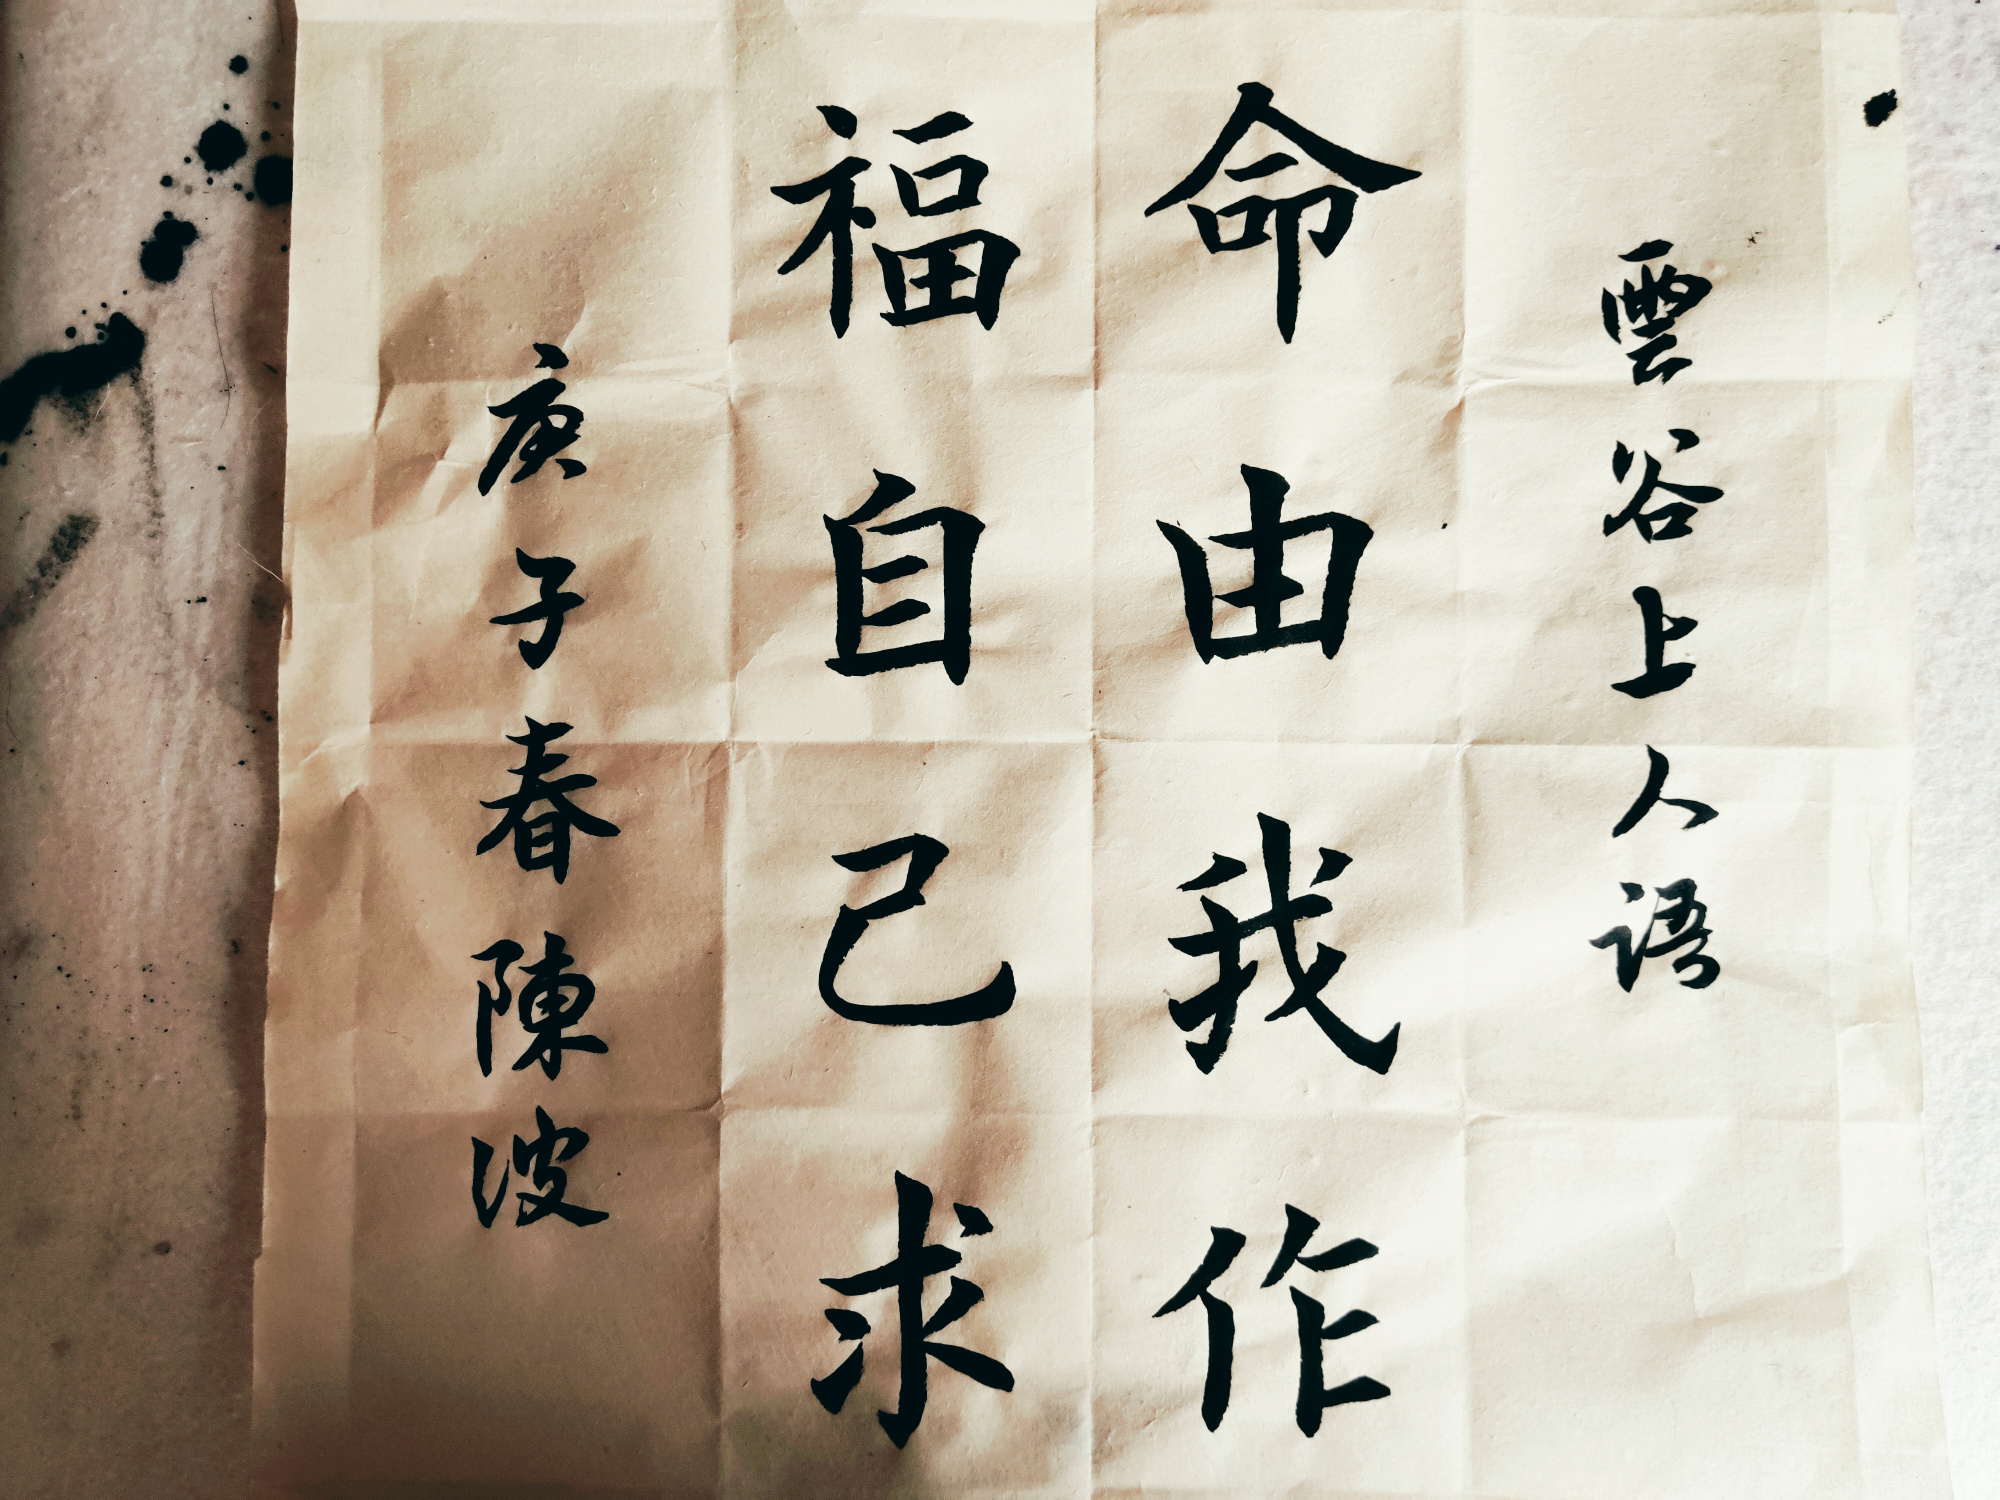 雲谷上人语
命由我作
福自己求
庚子春陳波